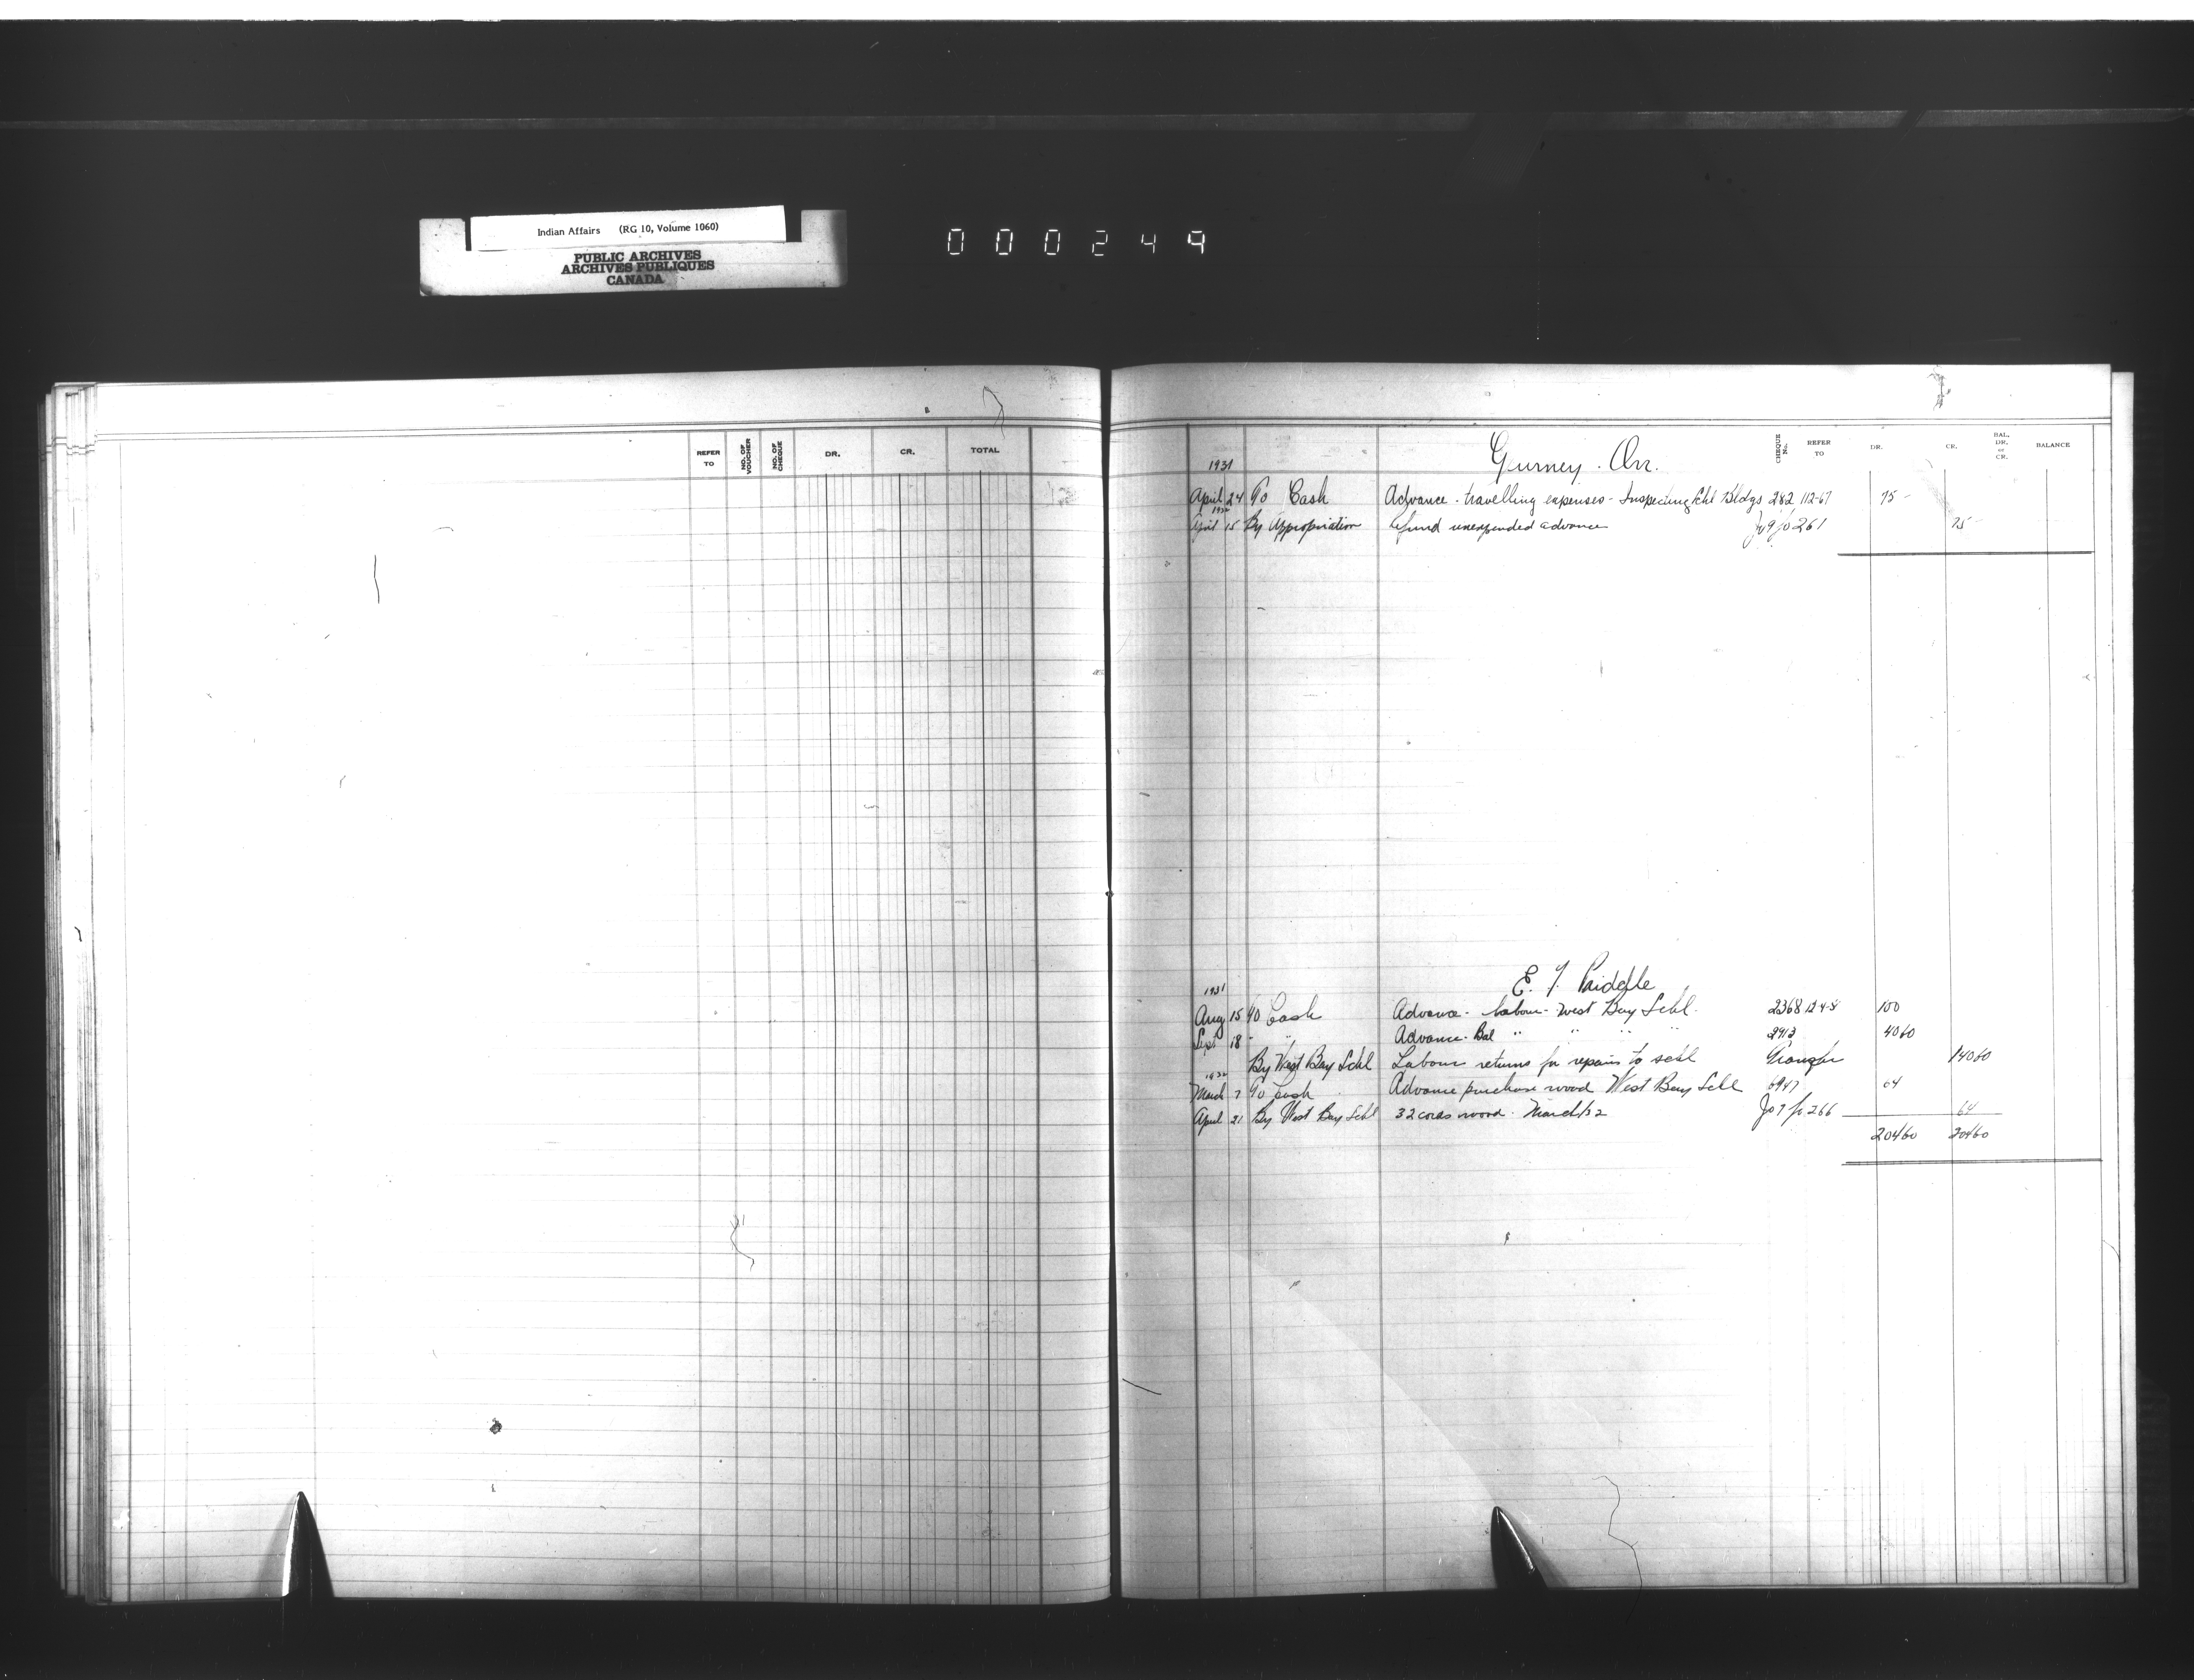 Indian Affairs (RG 10, Volume 1060)
PUBLIC ARCHIVES
ARCHIVES PUBLIQUES
CANADA
000249
REFER TO NO. OF VOUCHER NO. OF CHEQUE DR. CR. TOTAL
Gurney Orr. CHEQUE No. REFER TO DR. CR. BAL. DR. or CR. BALANCE
1931
April 24 To Cash Advance - travelling expenses - Inspecting Schl Bldgs 282 112-67 75 -
1932
April 15 By Appropriation Refund unexpended advance 261 75 -
E. J.
1931
Aug 15 To Cash Advance - labour - West Bay Schl. 2368 124-8 100
Sept 18 " " Advance - Bal " " " " 2913 4060
By West Bay Schl Labour returns for repairs to schl Transfer 14060
1932
March 7 To Cash Advance purchase wood West Bay Schl 6947 64
April 21 By West Bay Schl 32 cords wood. March/32 Jo 7 fo 266 64
20460 20460